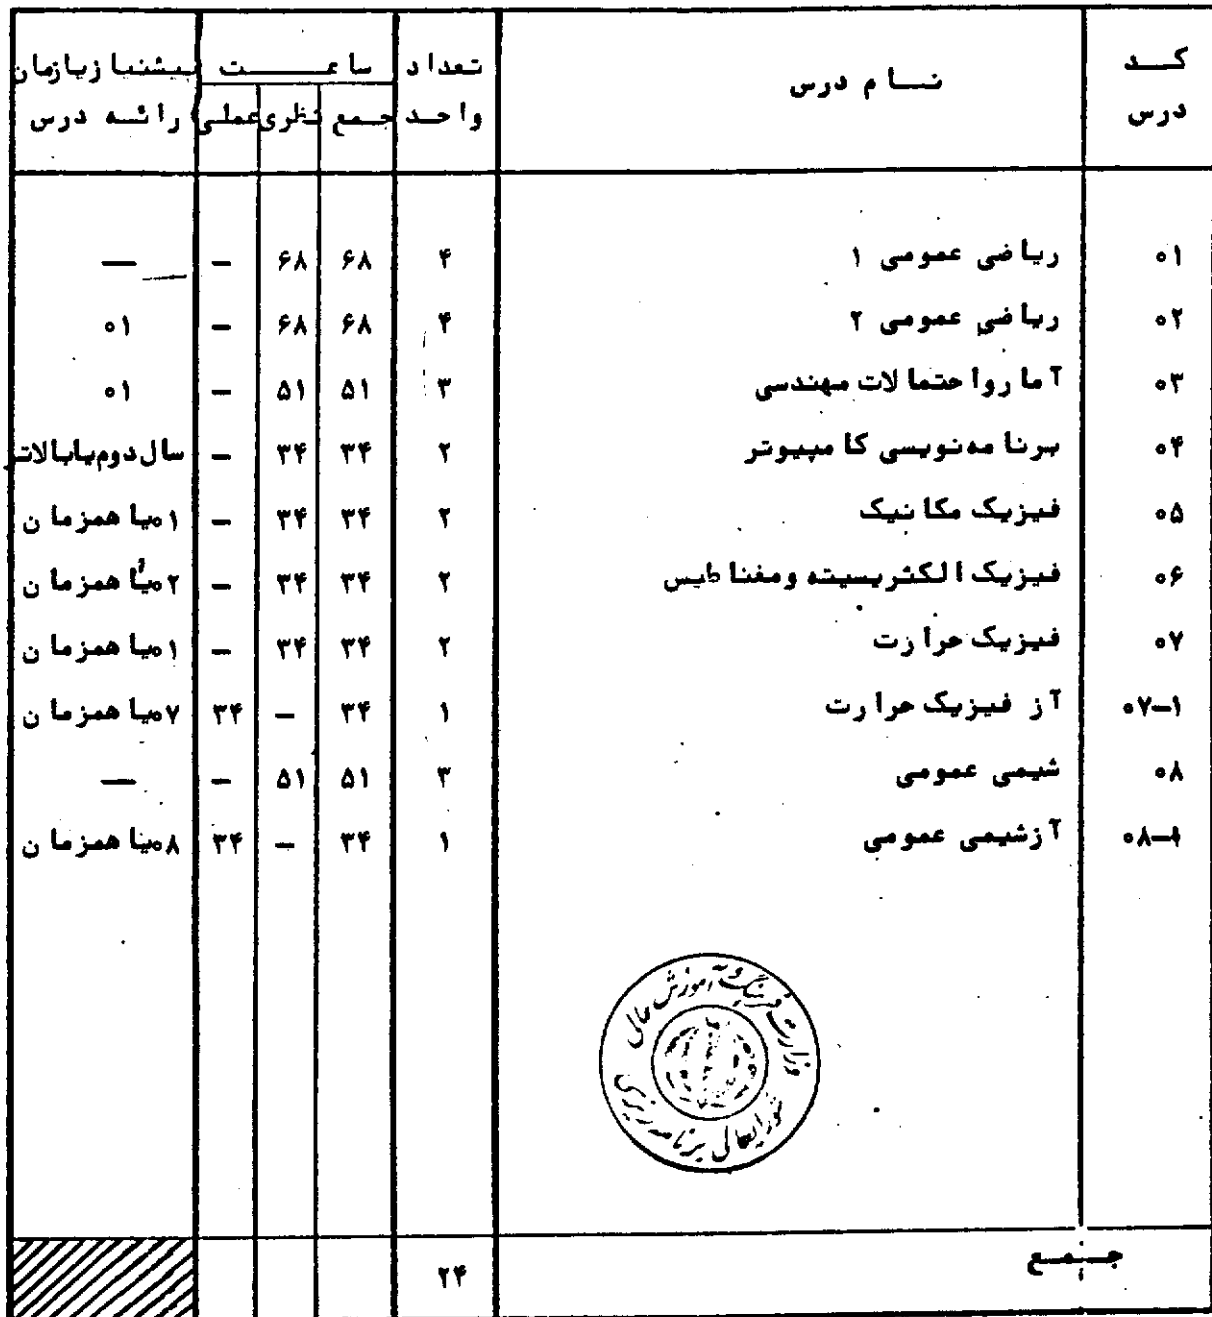 کد درس نام درس تعداد واحد ساعت پیشنیاز یا زمان ارائه درس
جمع نظری عملی
۰۱ ریاضی عمومی ۱ ۴ ۶۸ ۶۸ – —
۰۲ ریاضی عمومی ۲ ۴ ۶۸ ۶۸ – ۰۱
۰۳ آمار و احتمالات مهندسی ۳ ۵۱ ۵۱ – ۰۱
۰۴ برنامه‌نویسی کامپیوتر ۲ ۳۴ ۳۴ – سال دوم یا بالاتر
۰۵ فیزیک مکانیک ۲ ۳۴ ۳۴ – ۰۱ یا همزمان
۰۶ فیزیک الکتریسیته و مغناطیس ۲ ۳۴ ۳۴ – ۰۲ یا همزمان
۰۷ فیزیک حرارت ۲ ۳۴ ۳۴ – ۰۱ یا همزمان
۰۷–۱ آز فیزیک حرارت ۱ ۳۴ – ۳۴ ۰۷ یا همزمان
۰۸ شیمی عمومی ۳ ۵۱ ۵۱ – —
۰۸–۱ آز شیمی عمومی ۱ ۳۴ – ۳۴ ۰۸ یا همزمان
وزارت فرهنگ و آموزش عالی
شورایعالی برنامه ریزی
جمع ۲۴